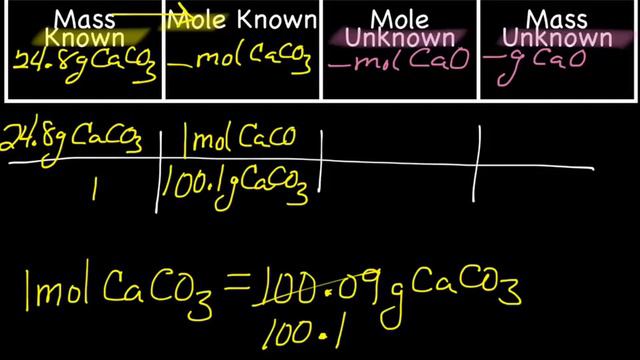 Mass Known
Mole Known
Mole Unknown
Mass Unknown
24.8g CaCO3
_mol CaCO3
_mol CaO
_g CaO
24.8g CaCO3
1mol CaCO
1
100.1g CaCO3
1mol CaCO3 = 100.09g CaCO3
100.1